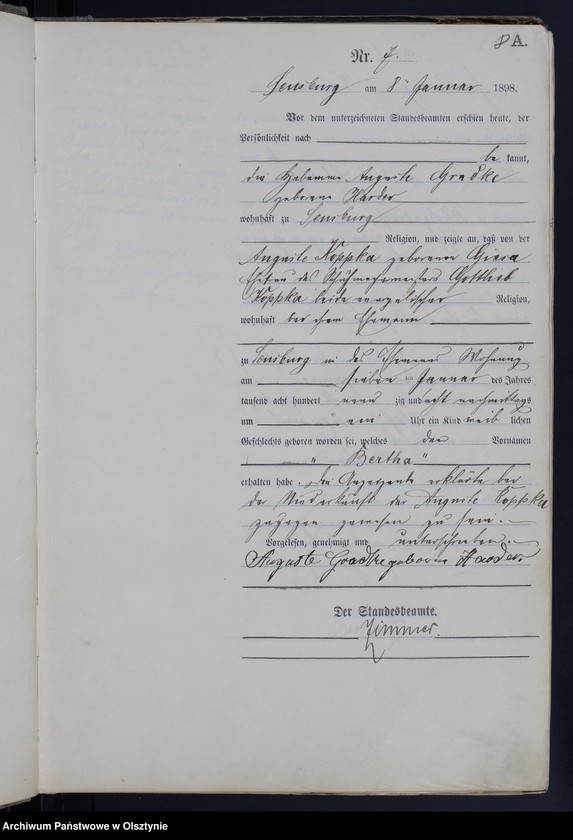 8 A.
Nr. 7.
Sensburg am 8ten Januar 1898.
Vor dem unterzeichneten Standesbeamten erschien heute, der
Persönlichkeit nach
be kannt,
die Hebamme Auguste Gradke
geborene Harder
wohnhaft zu Sensburg
Religion, und zeigte an, daß von der
Auguste Koppka geborenen
Ehefrau des Schuhmachermeisters Gottlieb
Koppka beide evangelischer Religion,
wohnhaft bei ihrem Ehemann
zu Sensburg in des Ehemanns Wohnung
am sieben ten Januar des Jahres
tausend acht hundert neun zig und acht nachmittags
um ein Uhr ein Kind weib lichen
Geschlechts geboren worden sei, welches den Vornamen
" Bertha "
erhalten habe. Die Anzeigende erklärte bei
der Niederkunft der Auguste Koppka
zugegen gewesen zu sein.
Vorgelesen, genehmigt und unterschrieben.
Auguste Gradke geborene Harder.
Der Standesbeamte.
Zimmer.
Archiwum Państwowe w Olsztynie